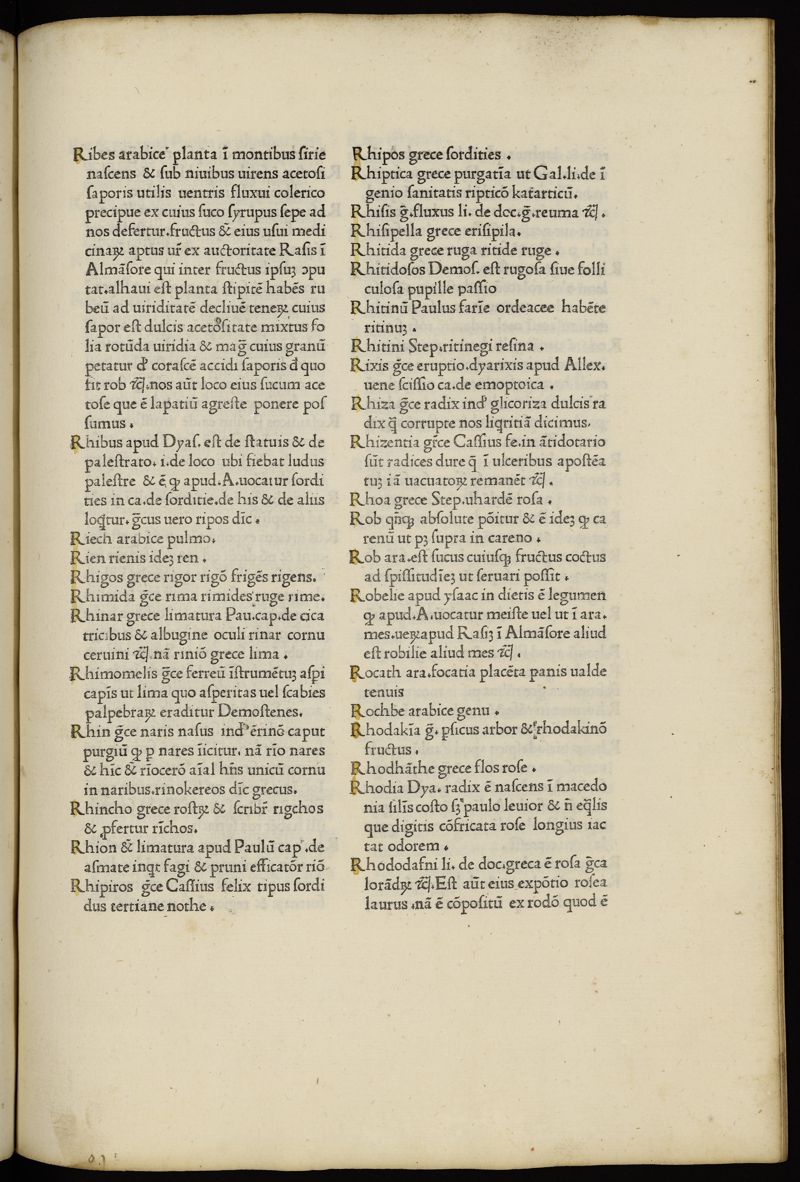 Ribes arabice planta ī montibus ſirie
naſcens & ſub niuibus uirens acetoſi
ſaporis utilis uentris fluxui colerico
precipue ex cuius ſuco ſyrupus ſepe ad
nos defertur.fructus & eius uſui medi
cinaꝝ aptus ur̄ ex auctoritate Raſis ī
Almāſore qui inter fructus ipſuꝫ ɔpu
tat.alhaui eſt planta ſtipitē habēs ru
beū ad uiriditatē decliuē teneꝝ cuius
ſapor eſt dulcis acetoſitate mixtus fo
lia rotūda uiridia & maḡ cuius granū
petatur coraſcē accidi ſaporis đ quo
fit rob ⁊cꝭ.nos aūt loco eius ſucum ace
toſe que ē lapatiū agreſte ponere poſ
ſumus .
Rhibus apud Dyaſ. eſt de ſtatuis & de
paleſtrato. i.de loco ubi fiebat ludus
paleſtre & ē ꝙ apud.A.uocatur ſordi
ties in ca.de ſorditie.de his & de aliis
loqtur.ḡcus uero ripos dīc .
Riech arabice pulmo.
Rien rienis ideꝫ ren .
Rhigos grece rigor rigō frigēs rigens.
Rhimida ḡce rima rimides ruge rime.
Rhinar grece limatura Pau.cap.de cica
tricibus & albugine oculi rinar cornu
ceruini ⁊cꝭ.nā riniō grece lima .
Rhimomelis ḡce ferreū īſtrumētuꝫ aſpi
capīs ut lima quo aſperitas uel ſcabies
palpebraꝝ eraditur Demoſtenes.
Rhin ḡce naris naſus ērinō caput
purgiū ꝙ p nares iicitur. nā rīo nares
& hīc & rīocerō aīal hn̄s unicū cornu
in naribus.rinokereos dīc grecus.
Rhincho grece roſtꝝ & ſcribr̄ rigchos
& ꝓfertur rīchos.
Rhion & limatura apud Paulū cap .de
aſmate inqt fagi & pruni efficatōr riō
Rhipiros ḡce Caſſius felix tipus ſordi
dus tertiane nothe .
Rhipos grece ſordities .
Rhiptica grece purgatīa ut Gal.li.de ī
genio ſanitatis ripticō katarticū.
Rhiſis ḡ.fluxus li. de doc.ḡ.reuma ⁊cꝭ .
Rhiſipella grece eriſipila.
Rhitida grece ruga ritide ruge .
Rhitidoſos Demoſ. eſt rugoſa ſiue folli
culoſa pupille paſſio
Rhitinū Paulus farīe ordeacee habēte
ritinuꝫ .
Rhitini Step.ritinegi reſina .
Rixis ḡce eruptio.dyarixis apud Allex.
uene ſciſſio ca.de emoptoica .
Rhiza ḡce radix glicoriza dulcis ra
dix q̄ corrupte nos liqritiā dicimus.
Rhizentia gr̄ce Caſſius fe.in ātidotario
ſūt radices dure q̄ ī ulceribus apoſtēa
tuꝫ iā uacuatoꝝ remanēt ⁊cꝭ .
Rhoa grece Step.uhardē roſa .
Rob qn̄ꝙ abſolute pōitur & ē ideꝫ ꝙ ca
renū ut pꝫ ſupra in careno .
Rob ara.eſt ſucus cuiuſꝙ fructus coctus
ad ſpiſſitudīeꝫ ut ſeruari poſſit .
Robelie apud yſaac in dietis ē legumen
ꝙ apud.A.uocatur meiſte uel ut ī ara.
mes.ueꝝ apud Raſiꝫ ī Almāſore aliud
eſt robilie aliud mes ⁊cꝭ .
Rocath ara.focatia placēta panis ualde
tenuis
Rochbe arabice genu .
Rhodakīa ḡ. pſicus arbor & rhodakinō
fructus .
Rhodhāthe grece flos roſe .
Rhodia Dya. radix ē naſcens ī macedo
nia ſilīs coſto ſꝫ paulo leuior & n̄ eq̄lis
que digitis cōfricata roſe longius iac
tat odorem .
Rhododafni li. de doc.greca ē roſa ḡca
lorādꝝ ⁊cꝭ.Eſt aūt eius expōtio roſea
laurus .nā ē cōpoſitū ex rodō quod ē